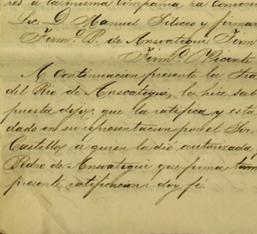 res á la misma compañía, la
Lic. D. Manuel Siliceo y firmar
Firm.º P. de Ansoategui Firm
Firm.º Vicente
A continuacion presente la Sra
del Rio de Ansoategui, la hice sab
puesta dijo: que la ratifica, y esta
dado en su representacion por el Sor.
Castillo, á quien la dió, autorizada p
Pedro de Ansoategui que firma
presente ratificacion: doy fé.